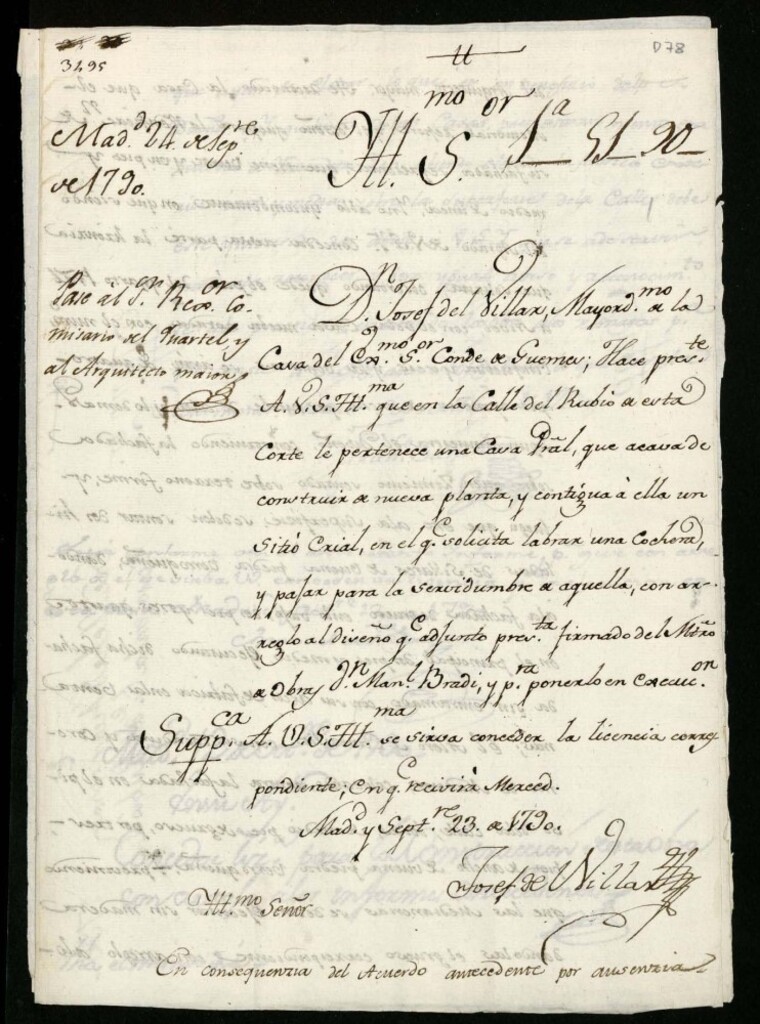 3495
D78
tt
Mad.d 24. de Sep.re
de 1790.
Yll.mo S.or 1a 51 90
Pase al S.or Rex.or Co-
misario del Quartel y
al Arquitecto maior
D.n Josef del Villar, Mayord.mo de la
Casa del Ex.mo S.or Conde de Guemes; Hace pres.te
A. V. S. Yll.ma que en la Calle del Rubio de esta
Corte le pertenece una Casa Pral, que acava de
construir de nueva planta, y contigua à ella un
Sitio Erial, en el q.e solicita labrar una Cochera,
y pajar para la servidumbre de aquella, con ar-
reglo al diseño q.e adjunto pres.ta firmado del Mtro
de Obras D.n Man.l Bradi, y p.ra ponerlo en Execuc.on
Supp.ca A. V. S. Yll.ma se sirva conceder la licencia corres
pondiente; En q.e recivirà Merced.
Mad.d y Sept.re 23. de 1790.
Josef del Villar
Yll.mo Señor
En consequentia del Acuerdo antecedente por ausentia